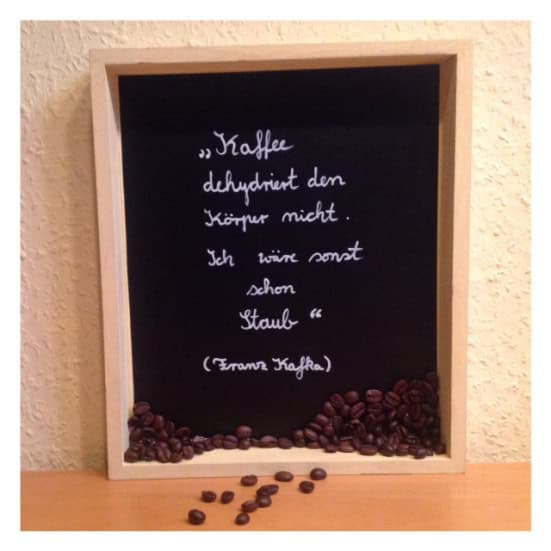 „Kaffee
dehydriert den
Körper nicht.
Ich wäre sonst
schon
Staub“
(Franz Kafka)